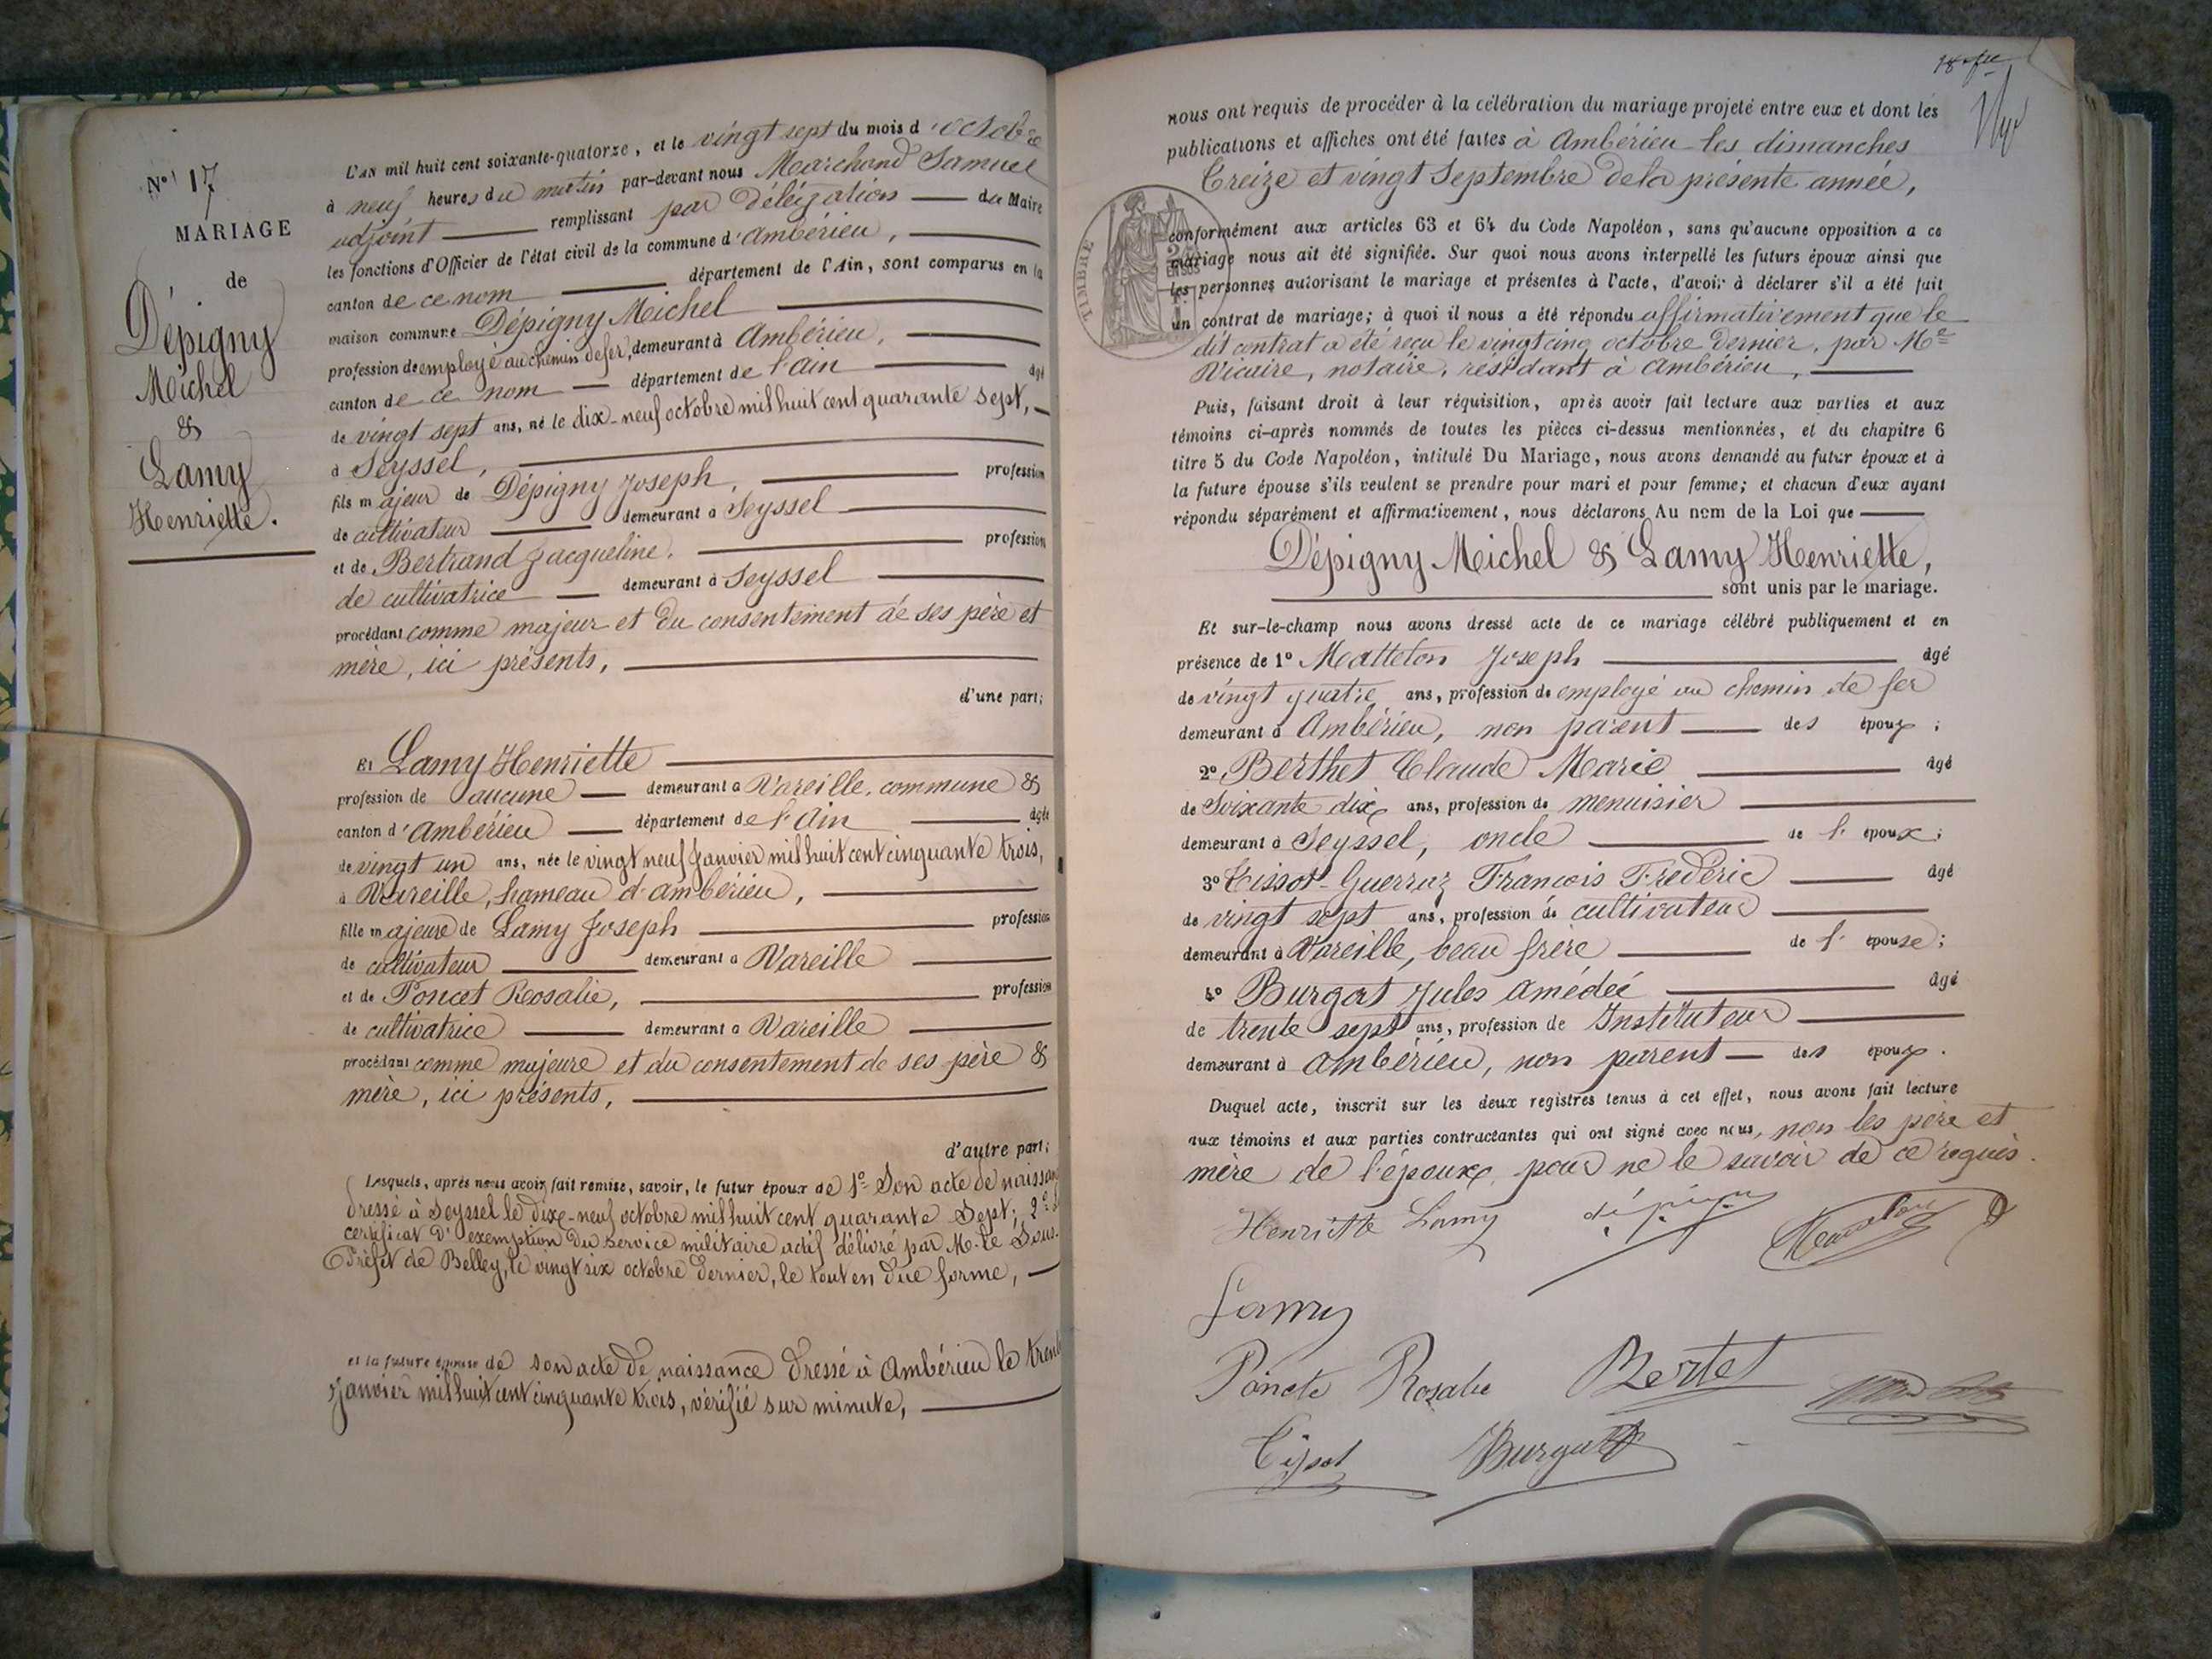 N° 17
MARIAGE
de
Dépigny
Michel
&
Lamy
Henriette.
L'an mil huit cent soixante-quatorze, et le vingt sept du mois d'octobre
à neuf heures du matin par-devant nous Marchand Samuel
adjoint remplissant par délégation du Maire
les fonctions d'Officier de l'état civil de la commune d'Ambérieu,
canton de ce nom département de l'Ain, sont comparus en la
maison commune Dépigny Michel
profession de employé au chemin de fer, demeurant à Ambérieu,
canton de ce nom département de l'ain âgé
de vingt sept ans, né le dix-neuf octobre mil huit cent quarante sept,
à Seyssel,
fils majeur de Dépigny Joseph, profession
de cultivateur demeurant à Seyssel
et de Bertrand Jacqueline, profession
de cultivatrice demeurant à Seyssel
procédant comme majeur et du consentement de ses père et
mère, ici présents,
d'une part;
Et Lamy Henriette
profession de aucune demeurant à Vareille, commune &
canton d'Ambérieu département de l'Ain âgée
de vingt un ans, née le vingt neuf Janvier mil huit cent cinquante trois,
à Vareille, hameau d'ambérieu,
fille majeure de Lamy Joseph profession
de cultivateur demeurant à Vareille
et de Poncet Rosalie, profession
de cultivatrice demeurant à Vareille
procédant comme majeure et du consentement de ses père &
mère, ici présents,
d'autre part;
Lesquels, après nous avoir fait remise, savoir, le futur époux de 1° Son acte de naissan
dressé à Seyssel le dix-neuf octobre mil huit cent quarante Sept; 2°
certificat d'exemption du service militaire actif délivré par M. le Sous-
Préfet de Belley, le vingt six octobre dernier, le tout en due forme,
et la future épouse de son acte de naissance dressé à Ambérieu le trente
Janvier mil huit cent cinquante trois, vérifié sur minute,
nous ont requis de procéder à la célébration du mariage projeté entre eux et dont les
publications et affiches ont été faites à Ambérieu les dimanches
Treize et vingt Septembre de la présente année,
TIMBRE
conformément aux articles 63 et 64 du Code Napoléon, sans qu'aucune opposition a ce
mariage nous ait été signifiée. Sur quoi nous avons interpellé les futurs époux ainsi que
les personnes autorisant le mariage et présentes à l'acte, d'avoir à déclarer s'il a été fait
un contrat de mariage; à quoi il nous a été répondu affirmativement que le
dit contrat a été reçu le vingt cinq octobre dernier, par Me
Vicaire, notaire, résidant à Ambérieu,
Puis, faisant droit à leur réquisition, après avoir fait lecture aux parties et aux
témoins ci-après nommés de toutes les pièces ci-dessus mentionnées, et du chapitre 6
titre 5 du Code Napoléon, intitulé Du Mariage, nous avons demandé au futur époux et à
la future épouse s'ils veulent se prendre pour mari et pour femme; et chacun d'eux ayant
répondu séparément et affirmativement, nous déclarons Au nom de la Loi que
Dépigny Michel & Lamy Henriette,
sont unis par le mariage.
Et sur-le-champ nous avons dressé acte de ce mariage célébré publiquement et en
présence de 1° Matteton Joseph âgé
de vingt quatre ans, profession de employé au chemin de fer
demeurant à Ambérieu, non parent des époux;
2° Berthet Claude Marie âgé
de Soixante dix ans, profession de menuisier
demeurant à Seyssel, oncle de l'époux;
3° Tissot-Guerraz François Fréderic âgé
de vingt sept ans, profession de cultivateur
demeurant à Vareille, beau frère de l'épouse;
4° Burgat Jules Amédée âgé
de trente sept ans, profession de Instituteur
demeurant à ambérieu, non parent des époux.
Duquel acte, inscrit sur les deux registres tenus à cet effet, nous avons fait lecture
aux témoins et aux parties contractantes qui ont signé avec nous, non les père et
mère de l'époux, pour ne le savoir de ce requis.
Henriette Lamy dépigny
Lamy
Poncte Rosalie Bertet
Tissot Burgat